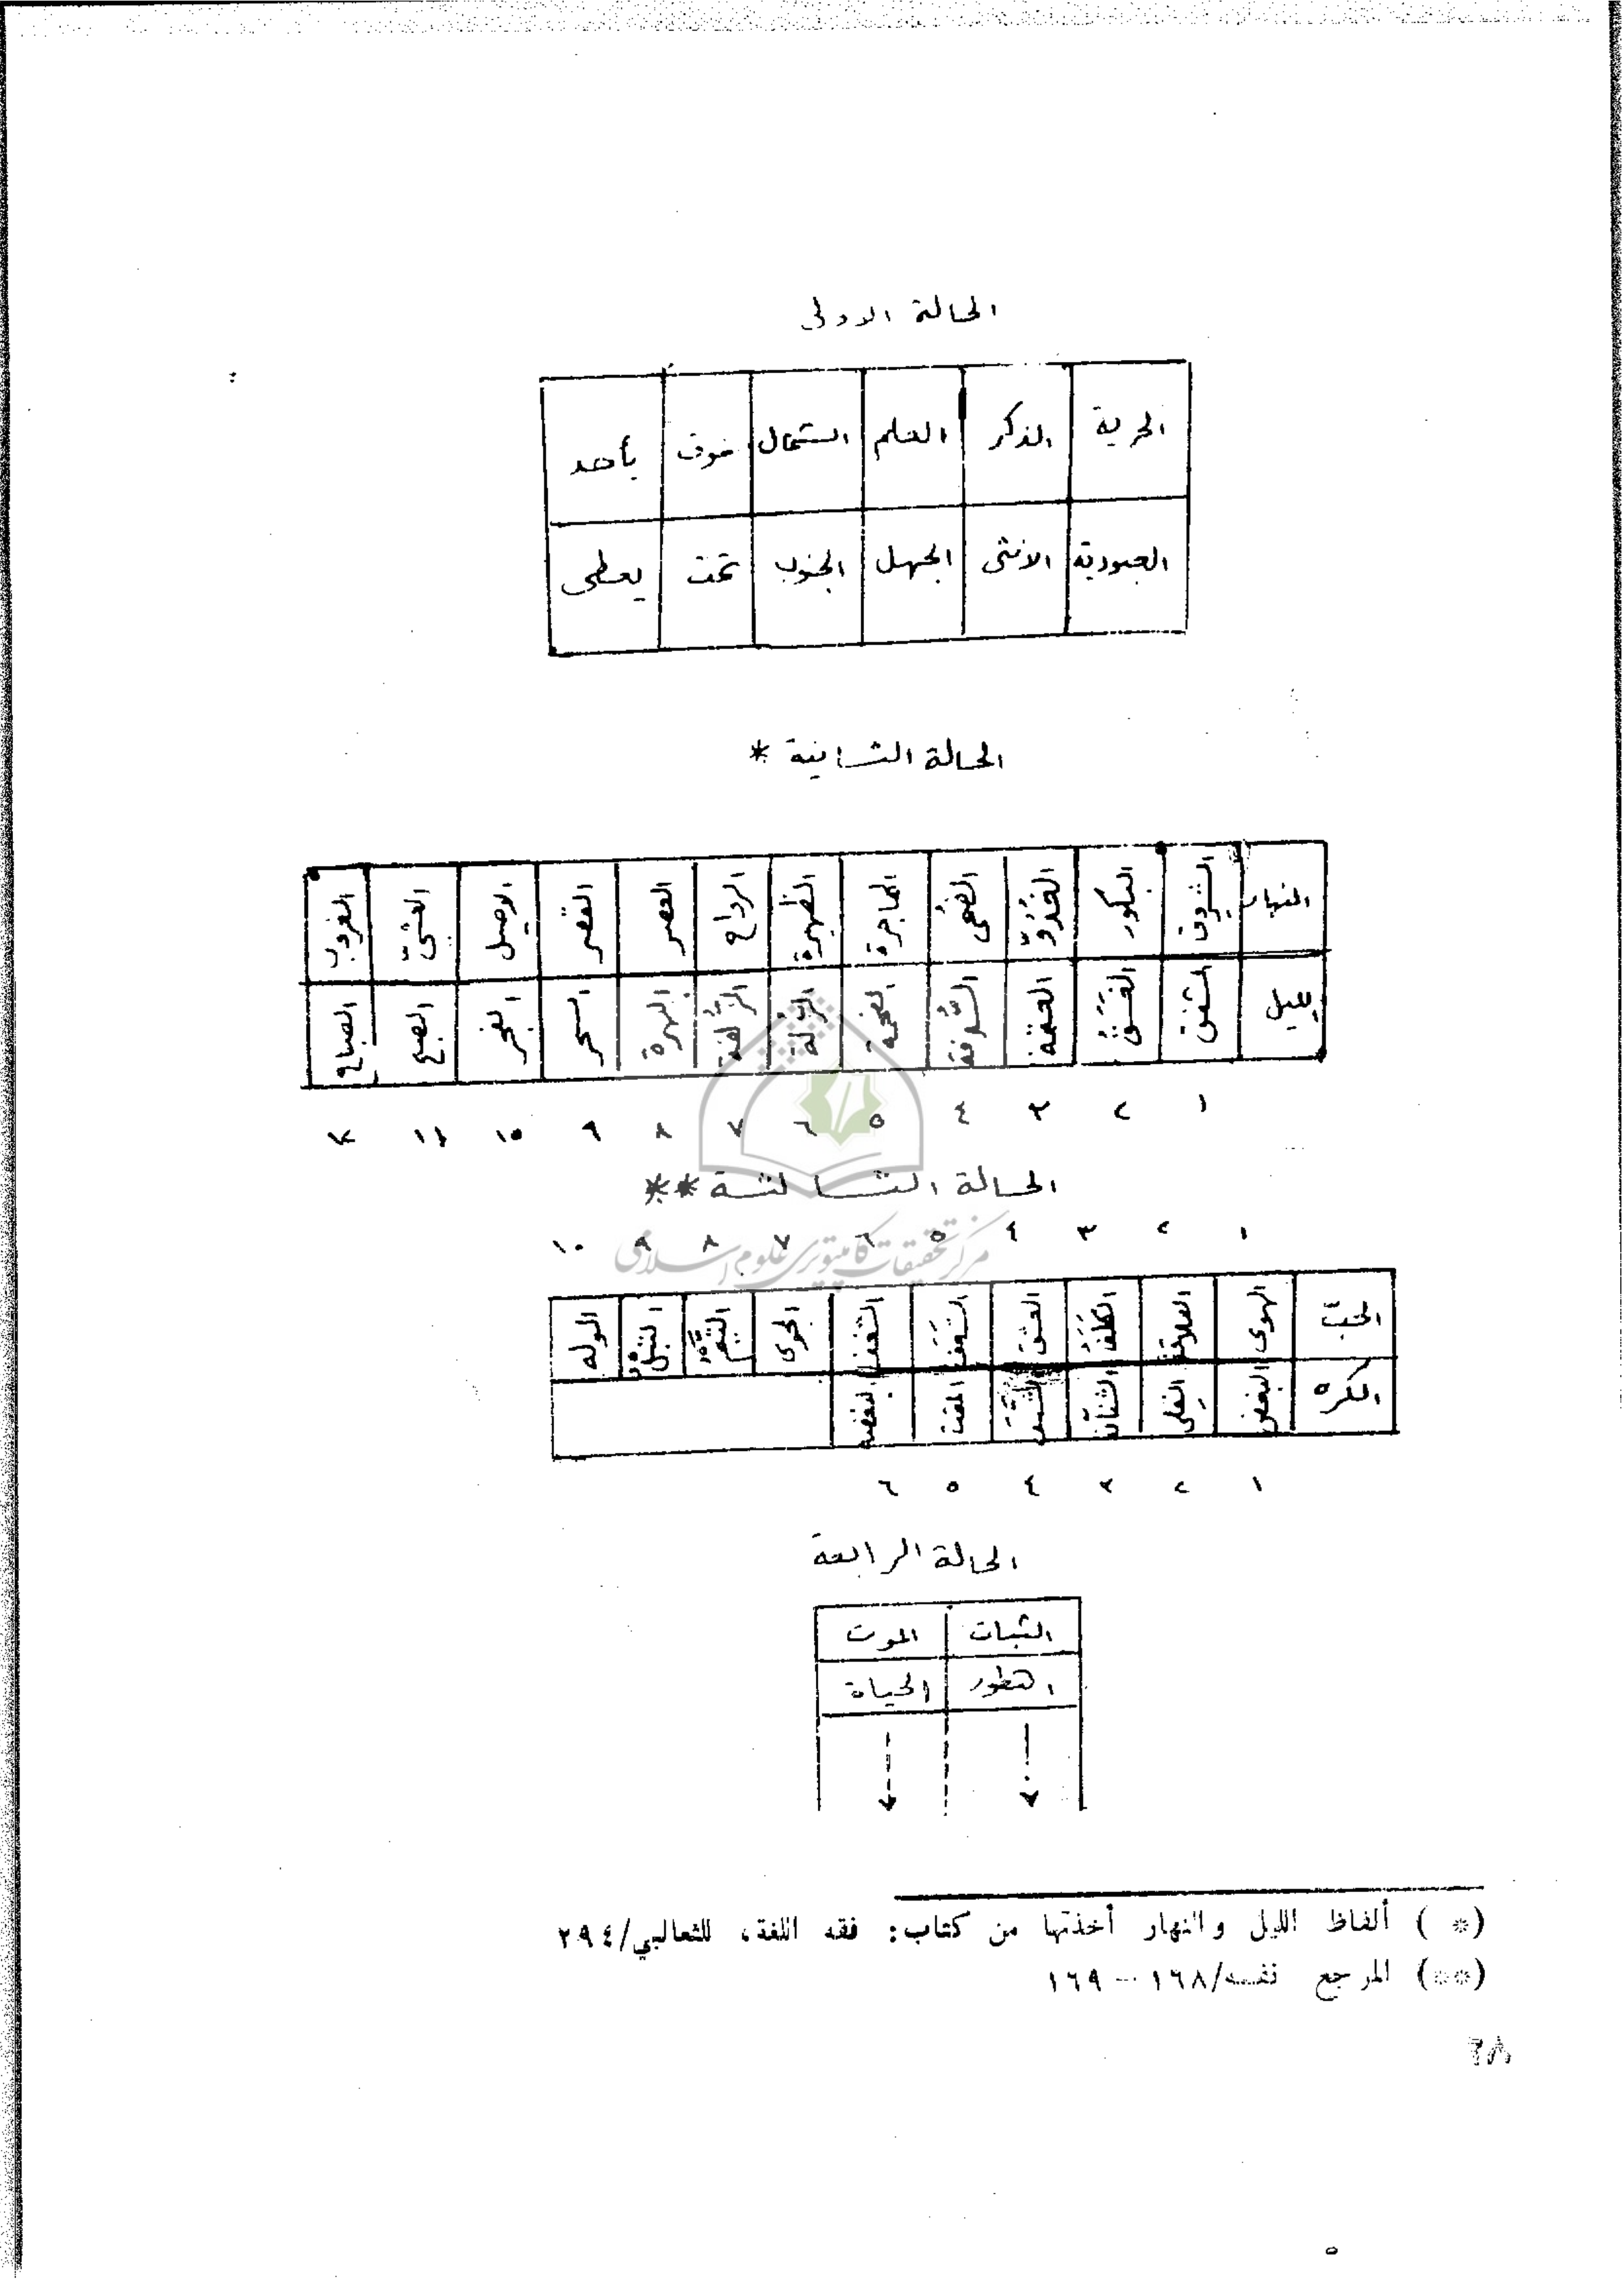 الحالة الاولى
الحرية الذكر العلم الشمال فوق يأخذ
العبودية الانثى الجهل الجنوب تحت يعطي
الحالة الثانية *
النهار الشروق البكور الغُدُوّ الضُحى الهاجرة الظهيرة الرواح العصر القصر الاصيل العشيّ الغروب
ليل الشفق الغَسَق العتمة السُّدفة الفحمة الزُّلة الزُّلفة البهرة السحر الفجر الصبح الصباح
١ ٢ ٣ ٤ ٥ ٦ ٧ ٨ ٩ ١٠ ١١
الحالة الثالثة **
١ ٢ ٣ ٤ ٥ ٦ ٧ ٨ ٩ ١٠
الحبّ الهوى العلاقة الكَلَف العشق الشَعَف الشغف الجوى التيم التبل الوله
الكره البغض القِلى الشنآن المقت البغضة
١ ٢ ٣ ٤ ٥ ٦
مركز تحقيقات كامپيوترى علوم اسلامى
الحالة الرابعة
الثبات الموت
التطور الحياة
(*) ألفاظ الليل والنهار أخذتها من كتاب: فقه اللغة، للثعالبي/٢٩٤
(**) المرجع نفسه/١٦٨ – ١٦٩